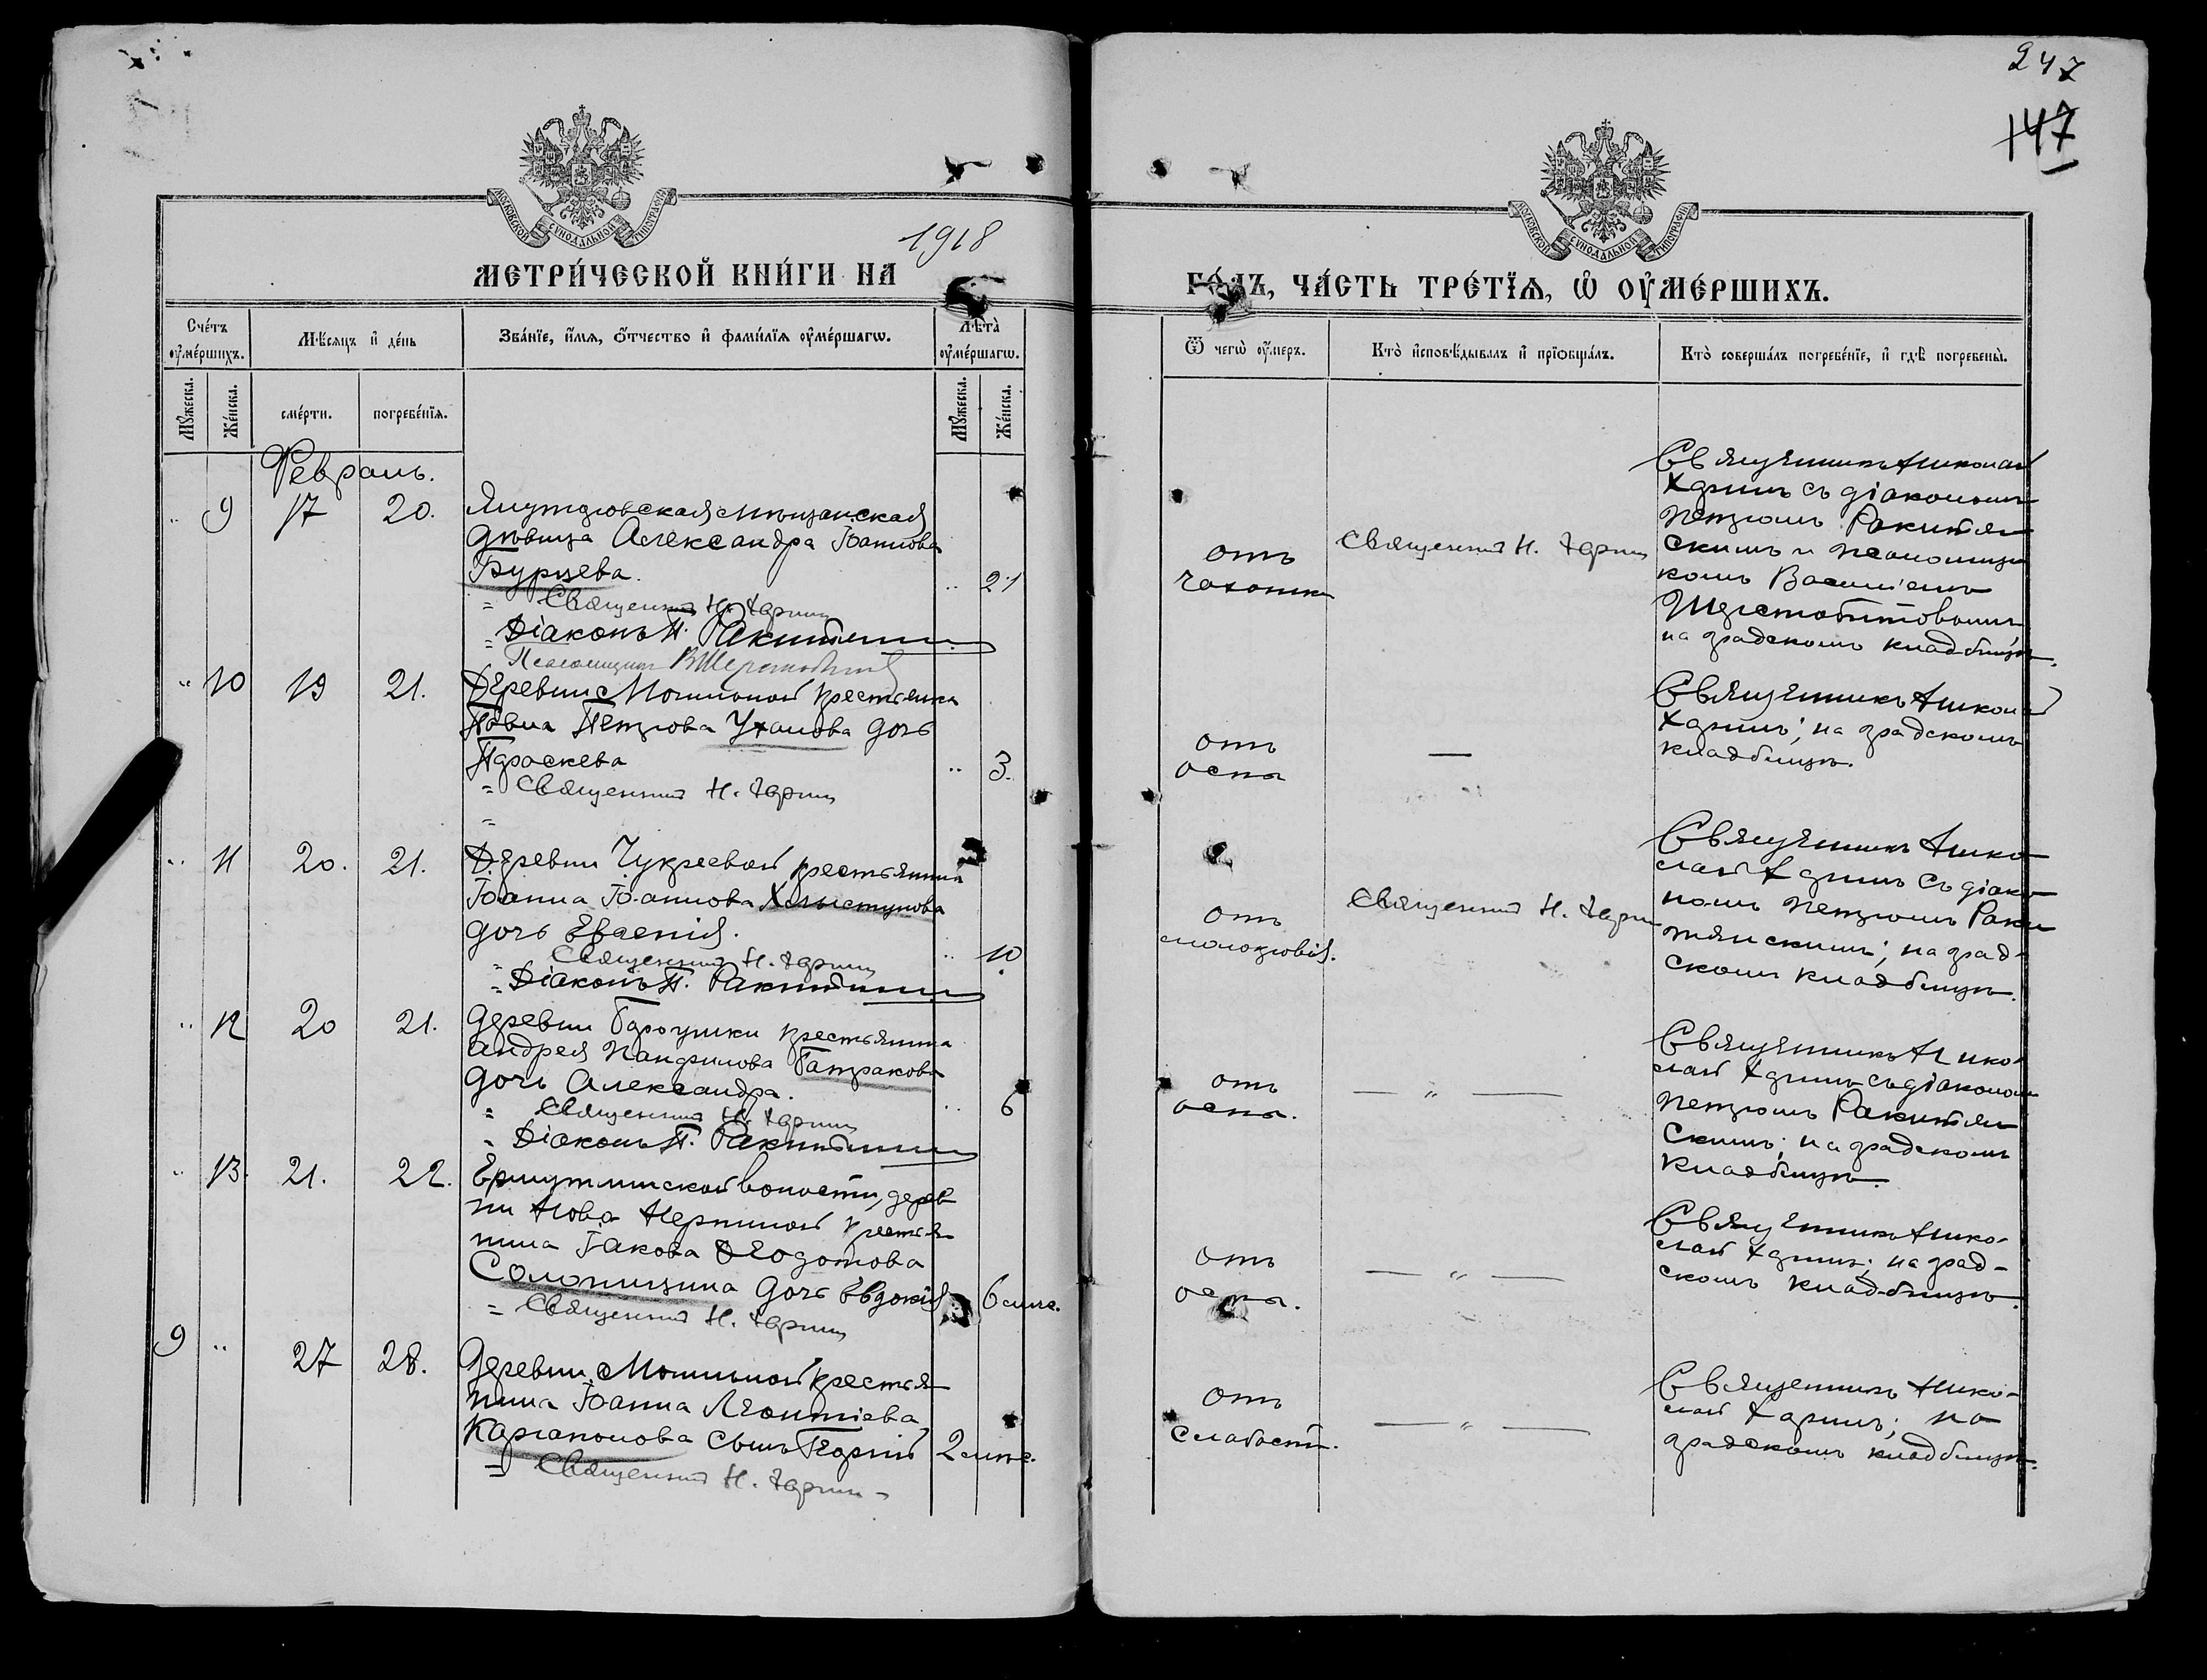 247
147
МОСКОВСКОЙ СѴНОДАЛЬНОЙ ТИПОГРАФІИ
МОСКОВСКОЙ СѴНОДАЛЬНОЙ ТИПОГРАФІИ
1918
МЕТРИ́ЧЕСКОЙ КНИ́ГИ НА
ГО́ДЪ, ЧА́СТЬ ТРЕ́ТЇѦ, Ѡ҆ ОУ҆МЕ́РШИХЪ.
Сче́тъ оу҆ме́ршихъ.
Мѣ́сяцъ и҆ де́нь
Зва́нїе, и҆́мѧ, ѻ҆́тчество и҆ фами́лїѧ оу҆ме́ршагѡ.
Лѣ́та̀ оу҆ме́ршагѡ.
Ѿ чегѡ̀ оу҆́меръ.
Кто̀ и҆сповѣ́дывалъ и҆ прїѡбща́лъ.
Кто̀ соверша́лъ погребе́нїе, и҆ гдѣ̀ погребены̀.
Мꙋ́жеска. Же́нска. сме́рти. погребе́нїѧ. Мꙋ́жеска. Же́нска.
Февраль.
" 9 17 20. Ялуторовская мѣщанская
дѣвица Александра Іоаннова
Бурцева. " 21
= Священникъ Н. Харинъ
= Діаконъ П. Ракитянскій
Псаломщикъ В. Шерстобитовъ
отъ
чахотки
Священникъ Н. Харинъ
Священникъ Николай
Харинъ съ діакономъ
Петромъ Ракитян
скимъ и псаломщи
комъ Василіемъ
Шерстобитовымъ
на градскомъ кладбищѣ.
" 10 19 21. Деревни Могильной крестьянина
Петрова Уханова дочь
Параскева " 3.
= Священникъ Н. Харинъ
=
отъ
оспы
—
Священникъ Николай
Харинъ; на градскомъ
кладбищѣ.
" 11 20. 21. Деревни Чукреевой крестьянина
Іоанна Іоаннова Хлыстунова
дочь Евгенія. " 10.
= Священникъ Н. Харинъ
= Діаконъ П. Ракитянскій
отъ
малокровія.
Священникъ Н. Харинъ
Священникъ Нико
лай Харинъ съ діако
номъ Петромъ Раки
тянскимъ; на град-
скомъ кладбищѣ.
" 12 20 21. Деревни крестьянина
Андрея Панфилова Батракова
дочь Александра. " 6
= Священникъ Н. Харинъ
= Діаконъ П. Ракитянскій
отъ
оспы.
— " —
Священникъ Нико-
лай Харинъ съ діакономъ
Петромъ Ракитян
скимъ; на градскомъ
кладбищѣ.
" 13. 21. 22. волости, дерев
ни Ново крестья
нина Іакова Ѳеодотова
Солоницина дочь Евдокія 6 мѣс.
= Священникъ Н. Харинъ
отъ
оспы.
— " —
Священникъ Нико-
лай Харинъ; на град-
скомъ кладбищѣ.
9 " 27 28. Деревни Могильной крестья
нина Іоанна Леонтіева
Каргаполова сынъ Георгій 2 мѣс.
= Священникъ Н. Харинъ
отъ
слабости.
— " —
Священникъ Нико-
лай Харинъ; на
градскомъ кладбищѣ.